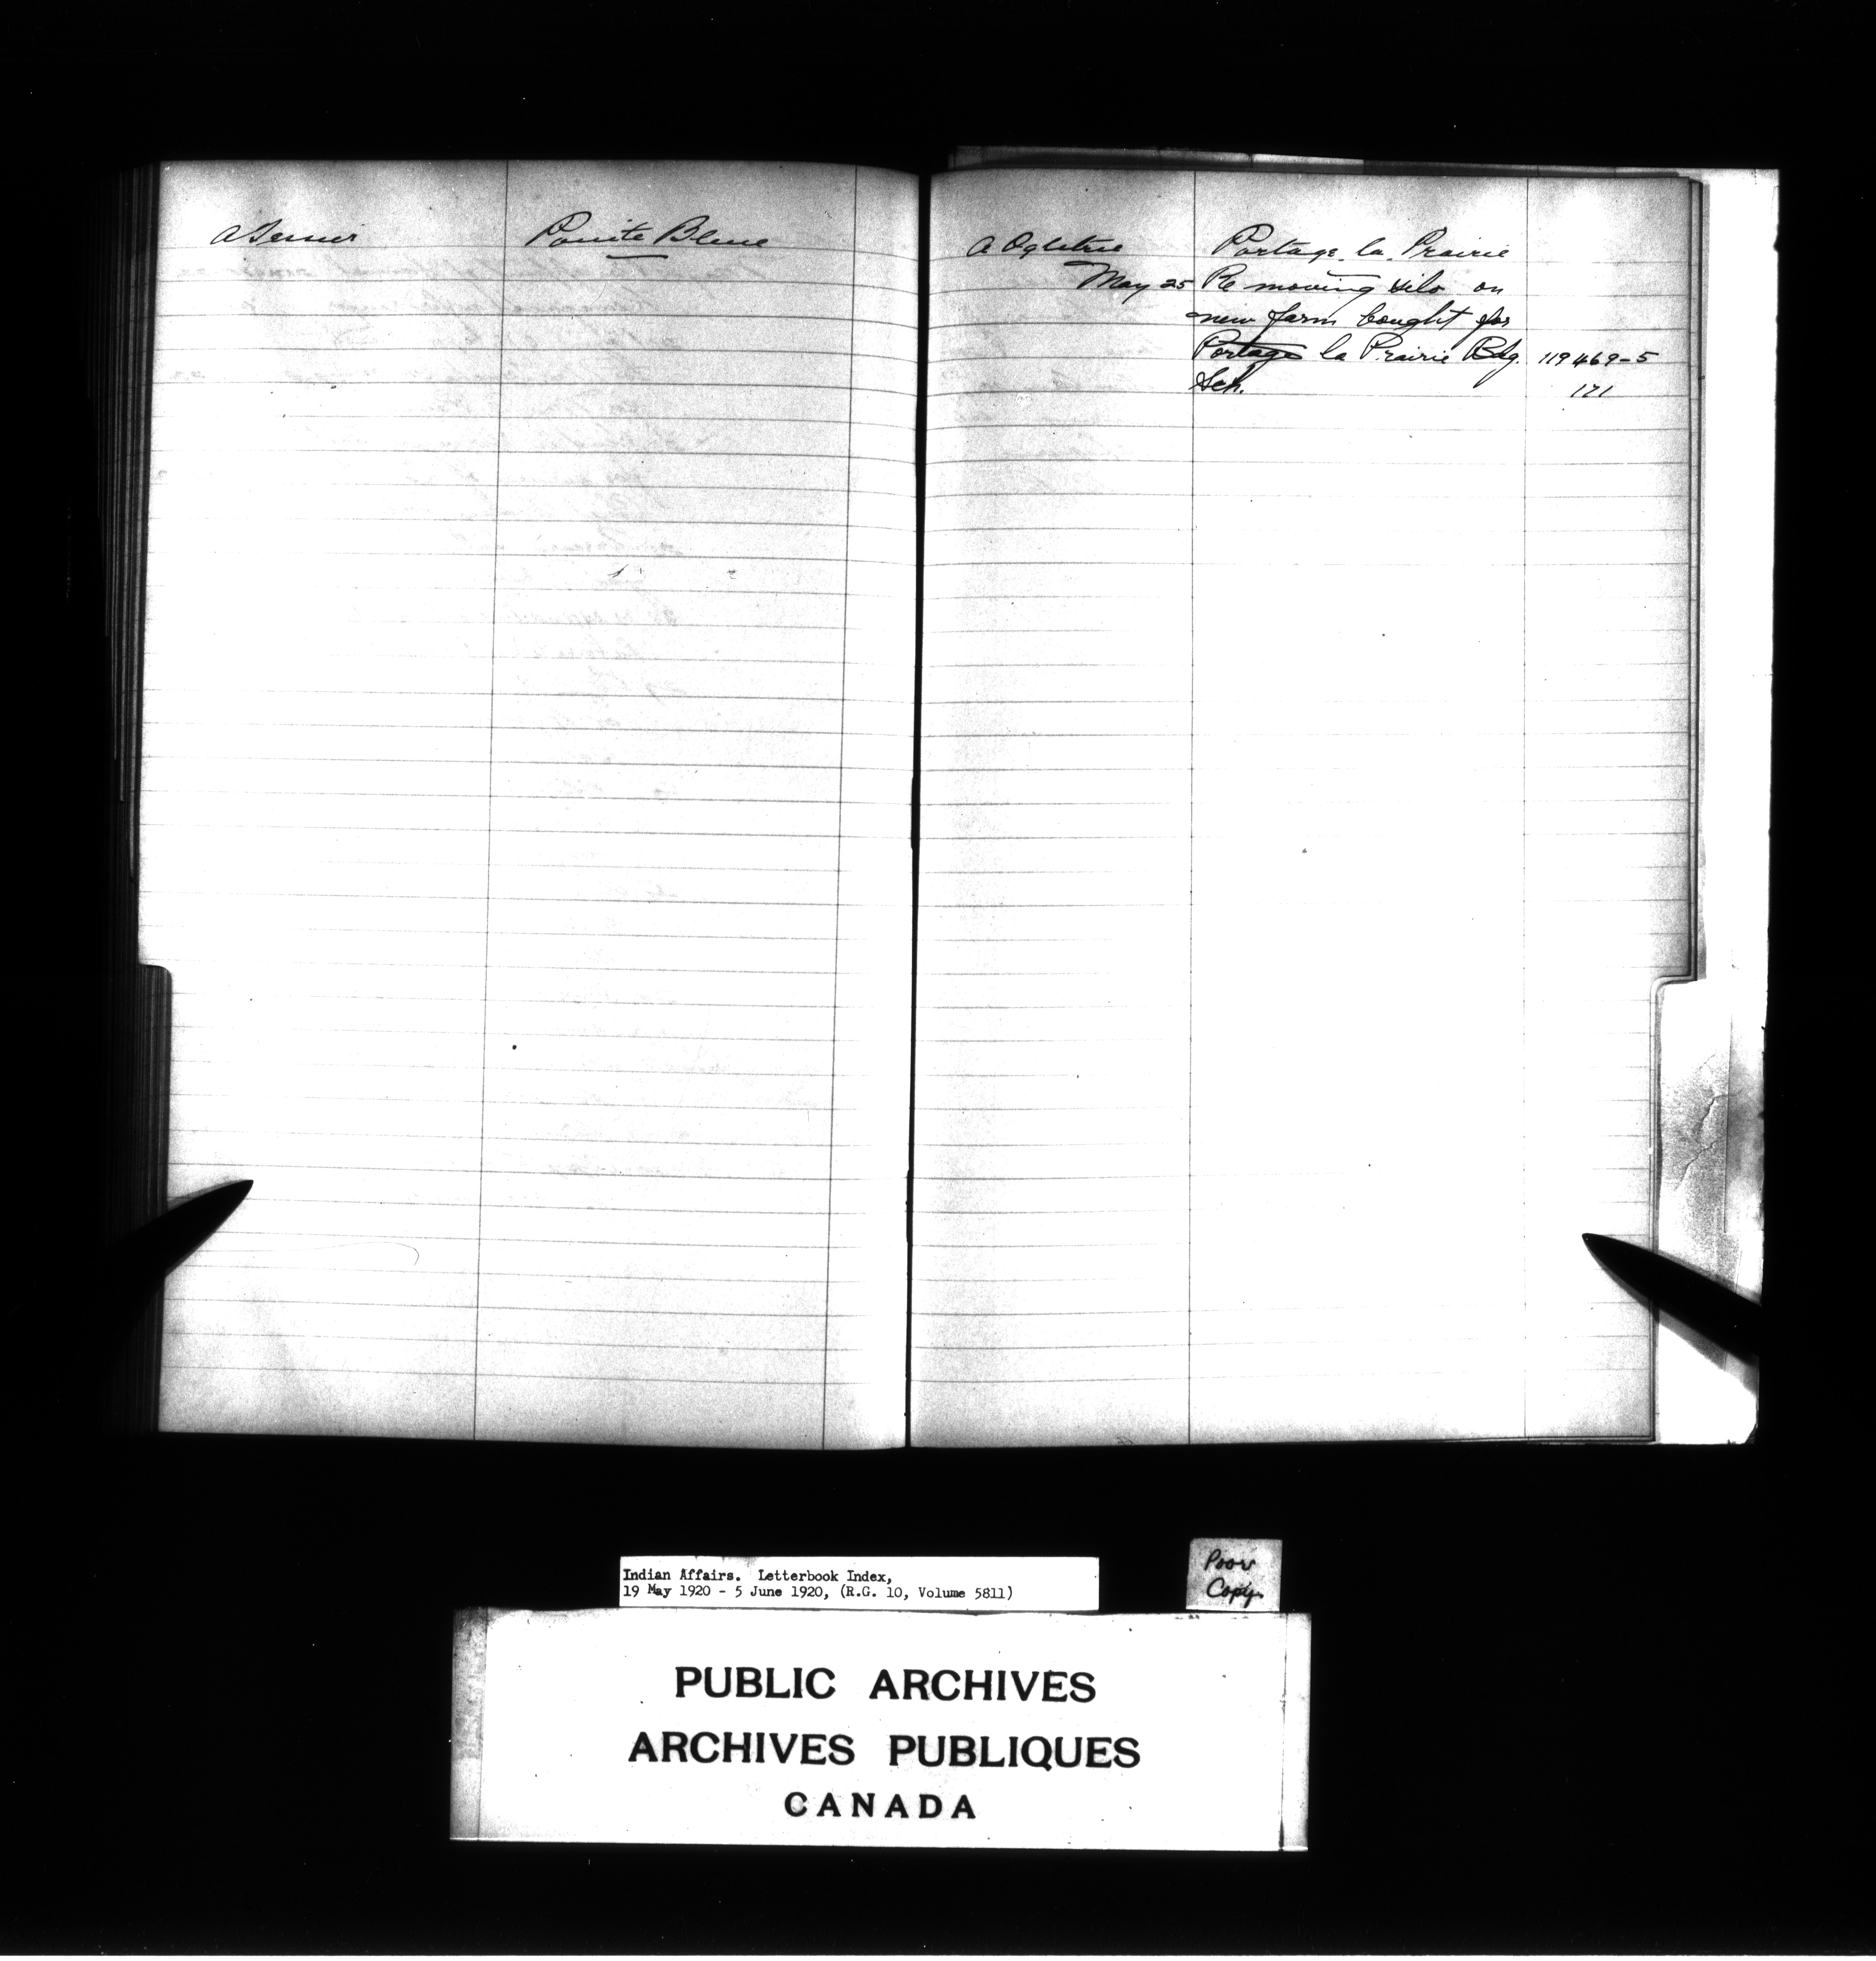 A Tessier Pointe Bleue
A Ogletree Portage la Prairie
May 25 Re moving silo on
new farm bought for
Portage la Prairie Bdg. 119469-5
Sch. 171
Indian Affairs. Letterbook Index,
19 May 1920 - 5 June 1920, (R.G. 10, Volume 5811)
Poor
Copy
PUBLIC ARCHIVES
ARCHIVES PUBLIQUES
CANADA